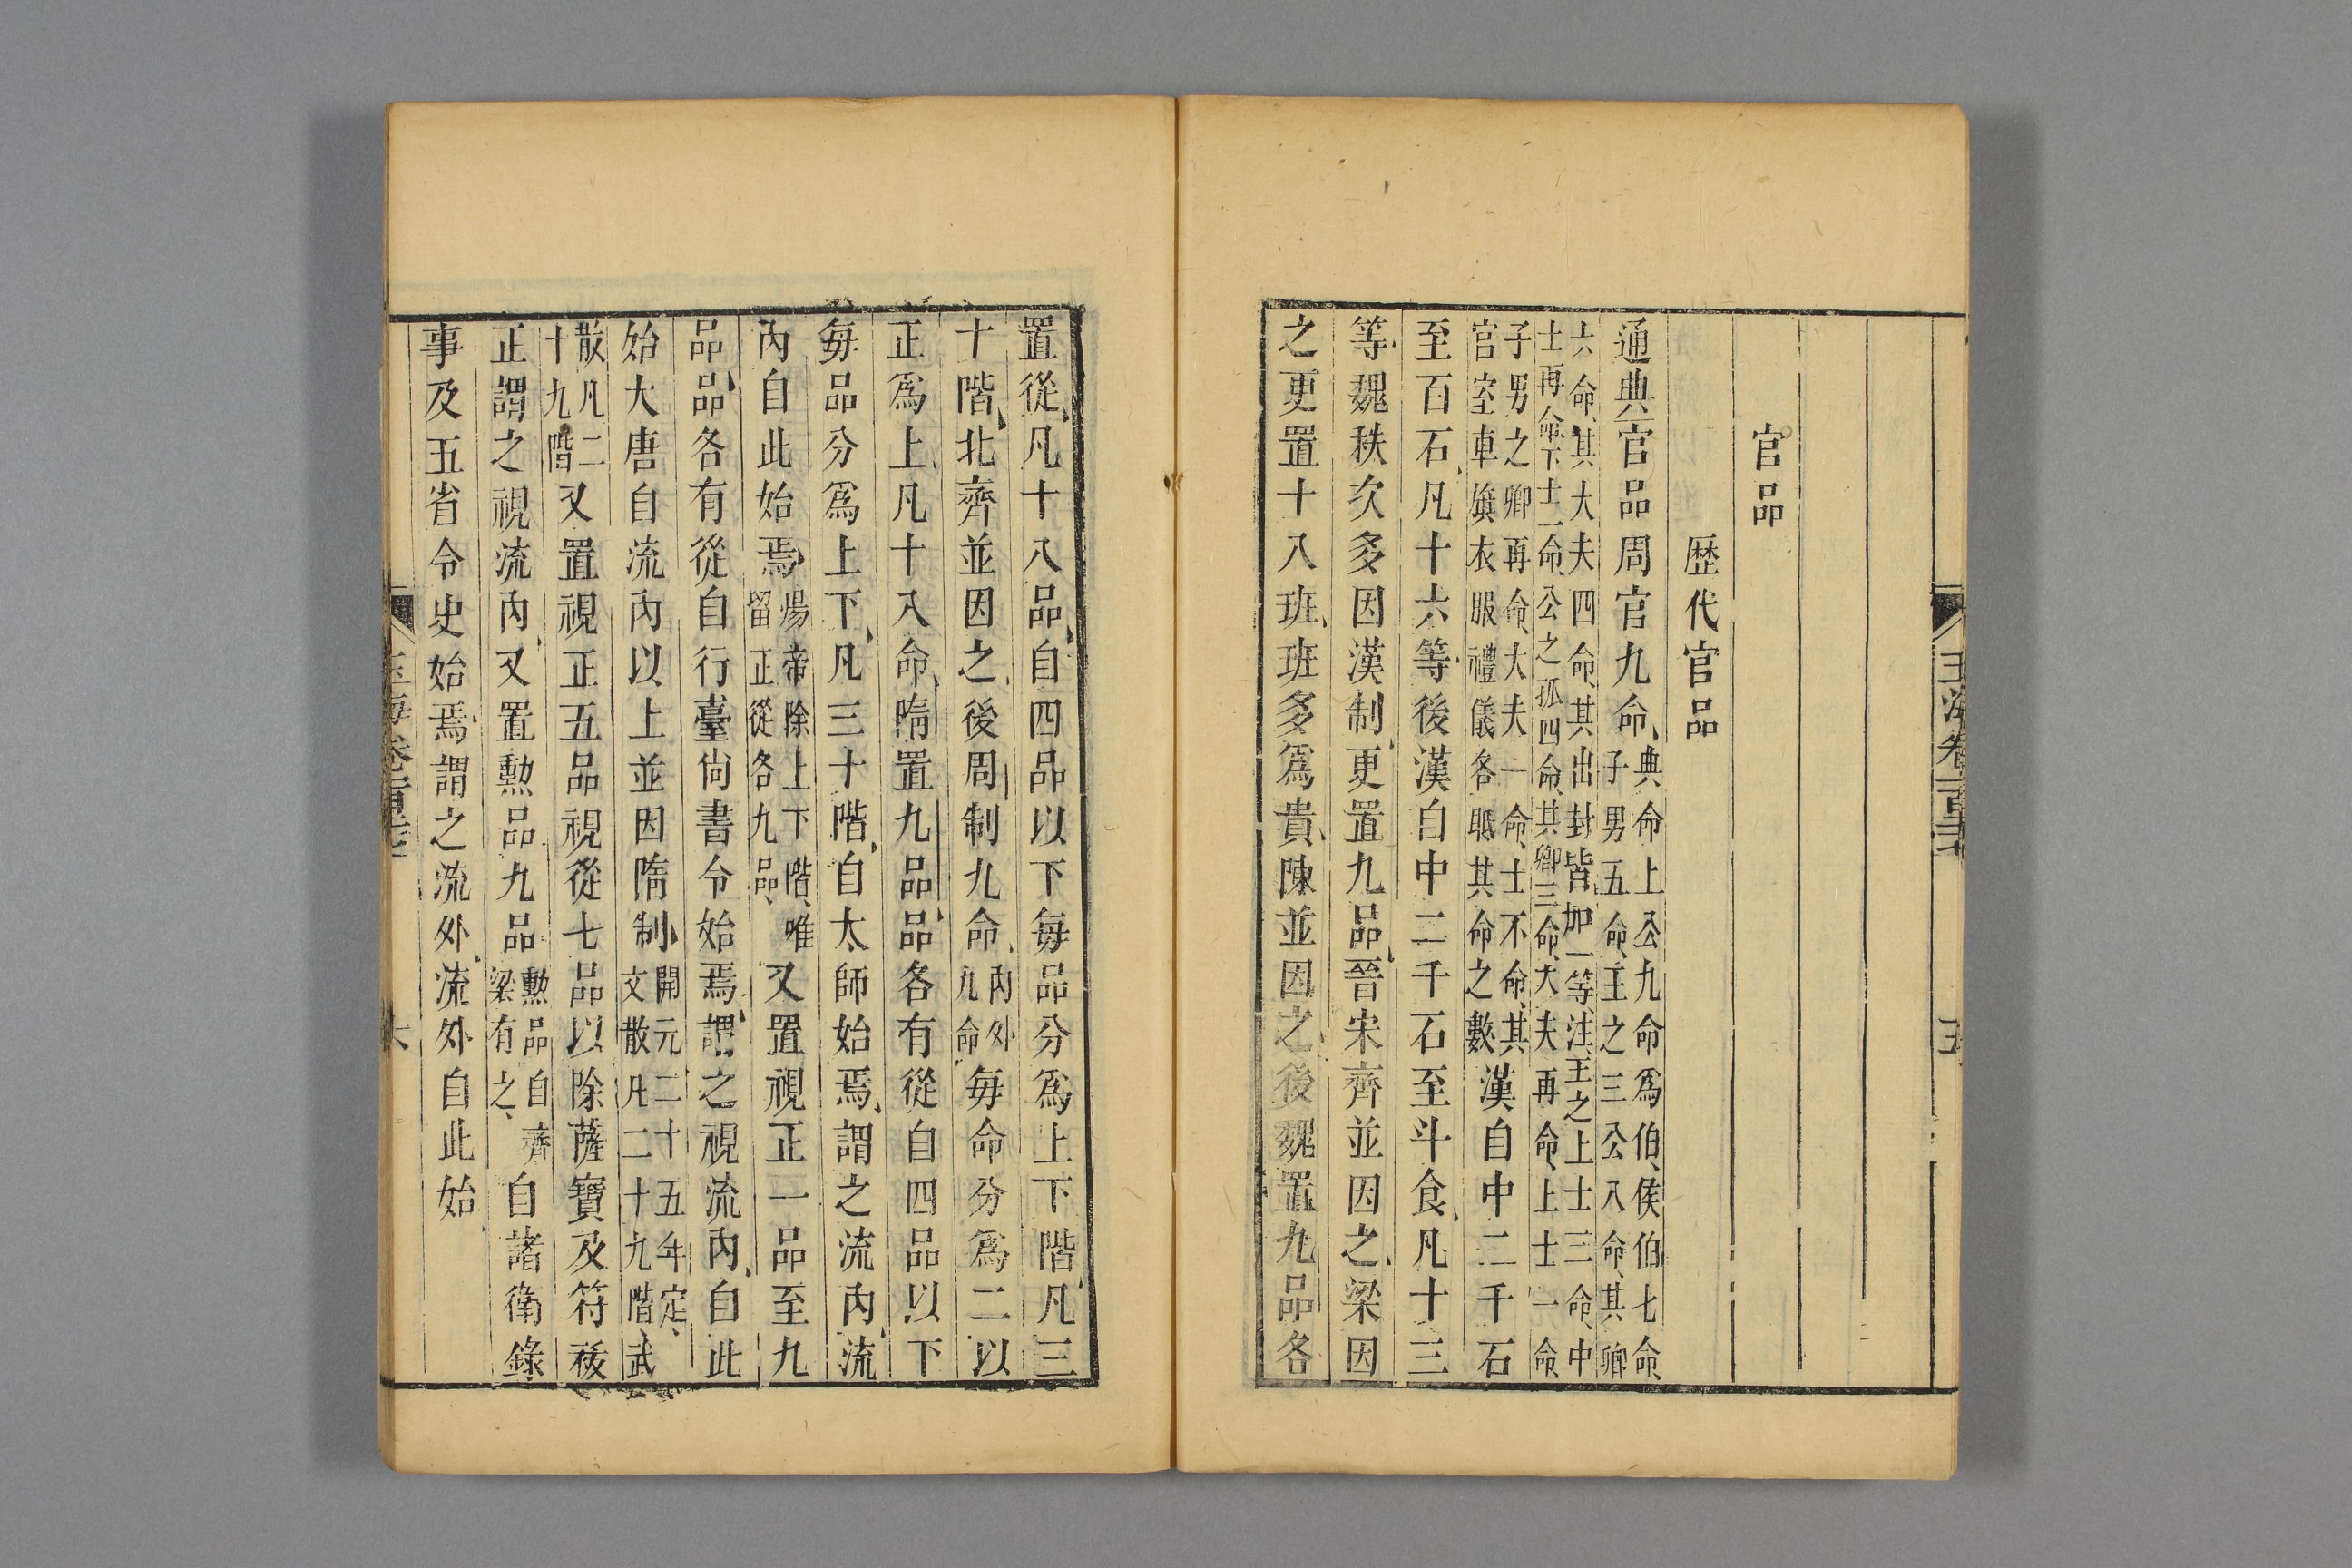 官品
歷代官品
通典官品周官九命典命上公九命爲伯侯伯七命
子男五命王之三公八命其卿
六命其大夫四命其出封皆加一等注王之上士三命中
士再命下士一命公之孤四命其卿三命大夫再命上士一命
子男之卿再命大夫一命士不命其
官室車旗衣服禮儀各眡其命之數漢自中二千石
至百石凡十六等後漢自中二千石至斗食凡十三
等魏秩次多因漢制更置九品晉宋齊並因之梁因
之更置十八班班多爲貴陳並因之後魏置九品各
置從凡十八品自四品以下每品分爲上下階凡三
十階北齊並因之後周制九命内外
九命每命分爲二以
正爲上凡十八命隋置九品品各有從自四品以下
每品分爲上下凡三十階自太師始焉謂之流内流
内自此始焉煬帝除上下階唯
留正從各九品又置視正一品至九
品品各有從自行臺尚書令始焉謂之視流内自此
始大唐自流内以上並因隋制開元二十五年定
文散凡二十九階武
散凡二
十九階又置視正五品視從七品以除薩寶及符祆
正謂之視流内又置勲品九品勲品自齊
梁有之自諸衛錄
事及五省令史始焉謂之流外流外自此始